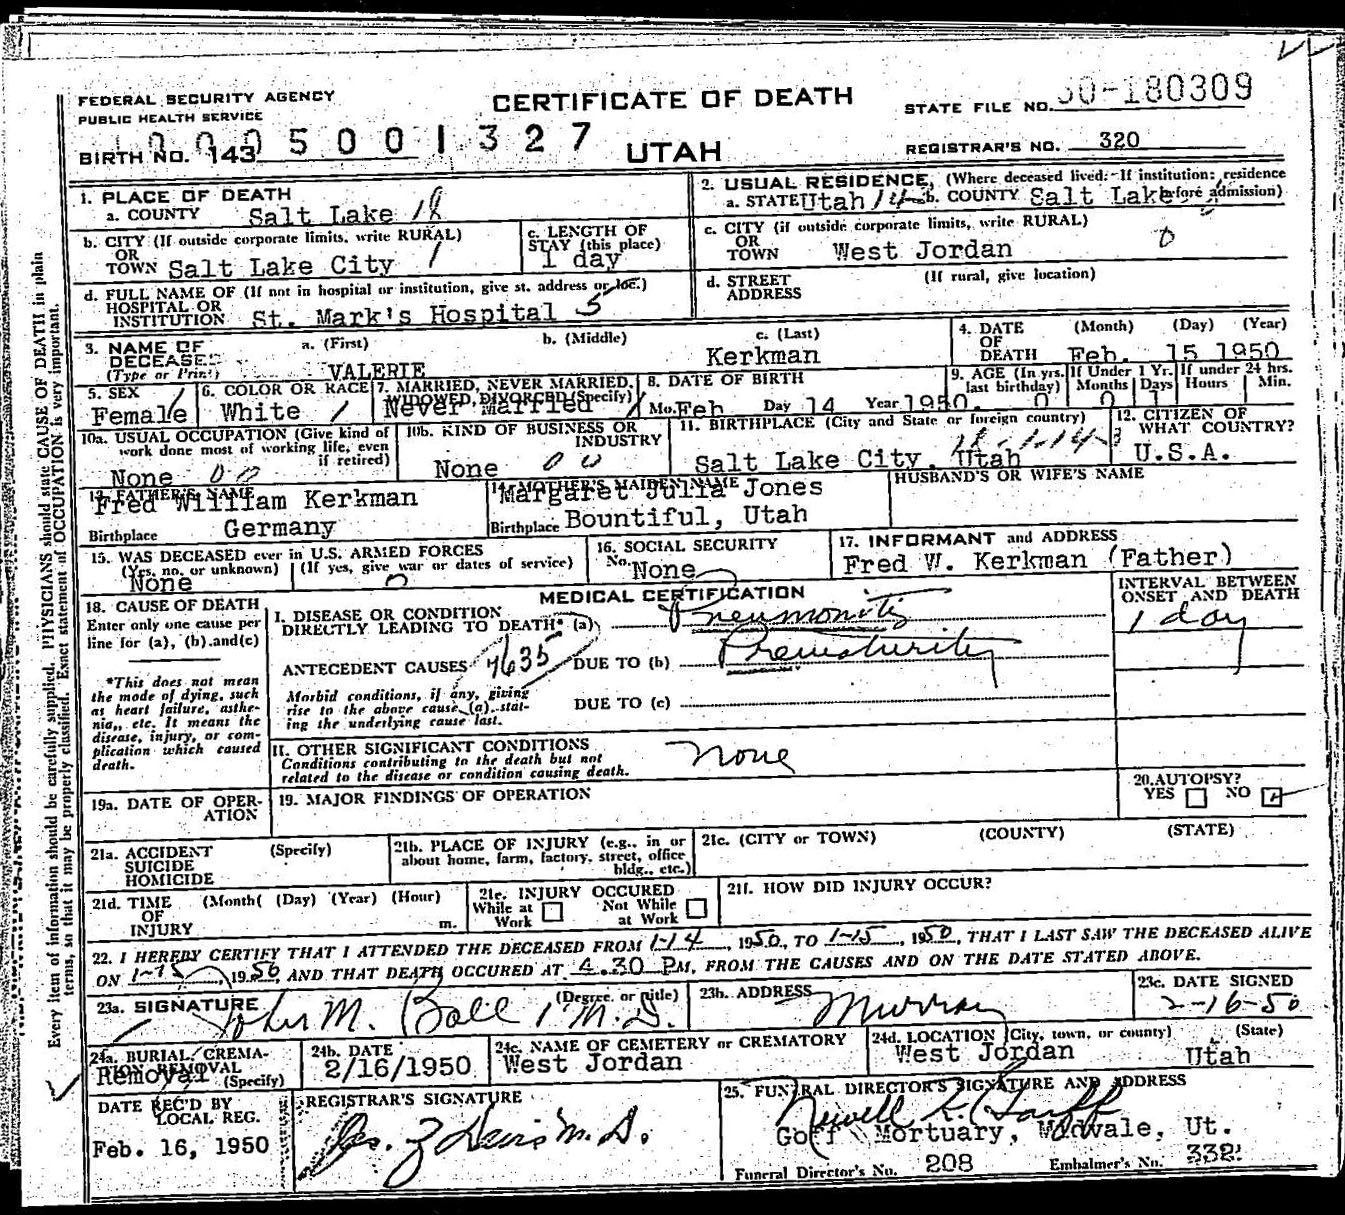 FEDERAL SECURITY AGENCY
PUBLIC HEALTH SERVICE
CERTIFICATE OF DEATH
STATE FILE NO. 50-180309
5001327
BIRTH NO. 143
UTAH
REGISTRAR'S NO. 320
1. PLACE OF DEATH
a. COUNTY Salt Lake 18
2. USUAL RESIDENCE, (Where deceased lived. If institution: residence before admission)
a. STATE Utah 14 b. COUNTY Salt Lake
b. CITY (If outside corporate limits, write RURAL)
OR
TOWN Salt Lake City 1
c. LENGTH OF
STAY (this place)
1 day
c. CITY (if outside corporate limits, write RURAL)
OR
TOWN West Jordan 0
d. FULL NAME OF (If not in hospital or institution, give st. address or loc.)
HOSPITAL OR
INSTITUTION St. Mark's Hospital 5
d. STREET (If rural, give location)
ADDRESS
3. NAME OF
DECEASED
(Type or Print)
a. (First) b. (Middle) c. (Last)
VALERIE Kerkman
4. DATE (Month) (Day) (Year)
OF
DEATH Feb. 15 1950
5. SEX
Female
6. COLOR OR RACE
White
7. MARRIED, NEVER MARRIED,
WIDOWED, DIVORCED (Specify)
Never Married
8. DATE OF BIRTH
Mo. Feb Day 14 Year 1950.
9. AGE (In yrs. last birthday) 0
If Under 1 Yr.
Months 0 Days 1
If under 24 hrs.
Hours Min.
10a. USUAL OCCUPATION (Give kind of
work done most of working life, even
if retired)
None 00
10b. KIND OF BUSINESS OR
INDUSTRY
None 00
11. BIRTHPLACE (City and State or foreign country)
Salt Lake City, Utah
12. CITIZEN OF
WHAT COUNTRY?
U.S.A.
13. FATHER'S NAME
Fred William Kerkman
Birthplace Germany
14. MOTHER'S MAIDEN NAME
Margaret Julia Jones
Birthplace Bountiful, Utah
HUSBAND'S OR WIFE'S NAME
15. WAS DECEASED ever in U.S. ARMED FORCES
(Yes, no, or unknown) (If yes, give war or dates of service)
None 0
16. SOCIAL SECURITY
No. None
17. INFORMANT and ADDRESS
Fred W. Kerkman (Father)
MEDICAL CERTIFICATION
INTERVAL BETWEEN
ONSET AND DEATH
18. CAUSE OF DEATH
Enter only one cause per
line for (a), (b) and (c)
*This does not mean
the mode of dying, such
as heart failure, asthe-
nia, etc. It means the
disease, injury, or com-
plication which caused
death.
I. DISEASE OR CONDITION
DIRECTLY LEADING TO DEATH* (a) Pneumonitis
1 day
ANTECEDENT CAUSES 7635 DUE TO (b) Prematurity
Morbid conditions, if any, giving
rise to the above cause (a), stat-
ing the underlying cause last.
DUE TO (c)
II. OTHER SIGNIFICANT CONDITIONS
Conditions contributing to the death but not
related to the disease or condition causing death.
None
19a. DATE OF OPER-
ATION
19. MAJOR FINDINGS OF OPERATION
20. AUTOPSY?
YES NO
21a. ACCIDENT (Specify)
SUICIDE
HOMICIDE
21b. PLACE OF INJURY (e.g., in or
about home, farm, factory, street, office
bldg., etc.)
21c. (CITY or TOWN) (COUNTY) (STATE)
21d. TIME (Month( (Day) (Year) (Hour)
OF
INJURY m.
21e. INJURY OCCURED
While at Work Not While at Work
21f. HOW DID INJURY OCCUR?
22. I HEREBY CERTIFY THAT I ATTENDED THE DECEASED FROM 1-14, 1950, TO 1-15, 1950, THAT I LAST SAW THE DECEASED ALIVE
ON 1-15, 1950, AND THAT DEATH OCCURED AT 4.30 PM, FROM THE CAUSES AND ON THE DATE STATED ABOVE.
23a. SIGNATURE (Degree or title)
John M. Ball M.D.
23b. ADDRESS
Murray
23c. DATE SIGNED
2-16-50
24a. BURIAL, CREMA-
TION REMOVAL
(Specify)
Removal
24b. DATE
2/16/1950
24c. NAME OF CEMETERY or CREMATORY
West Jordan
24d. LOCATION (City, town, or county) (State)
West Jordan Utah
DATE REC'D BY
LOCAL REG.
Feb. 16, 1950
REGISTRAR'S SIGNATURE
M.D.
25. FUNERAL DIRECTOR'S SIGNATURE AND ADDRESS
Goff Mortuary, Midvale, Ut.
Funeral Director's No. 208 Embalmer's No. 332
Every item of information should be carefully supplied. PHYSICIANS should state CAUSE OF DEATH in plain
terms, so that it may be properly classified. Exact statement of OCCUPATION is very important.